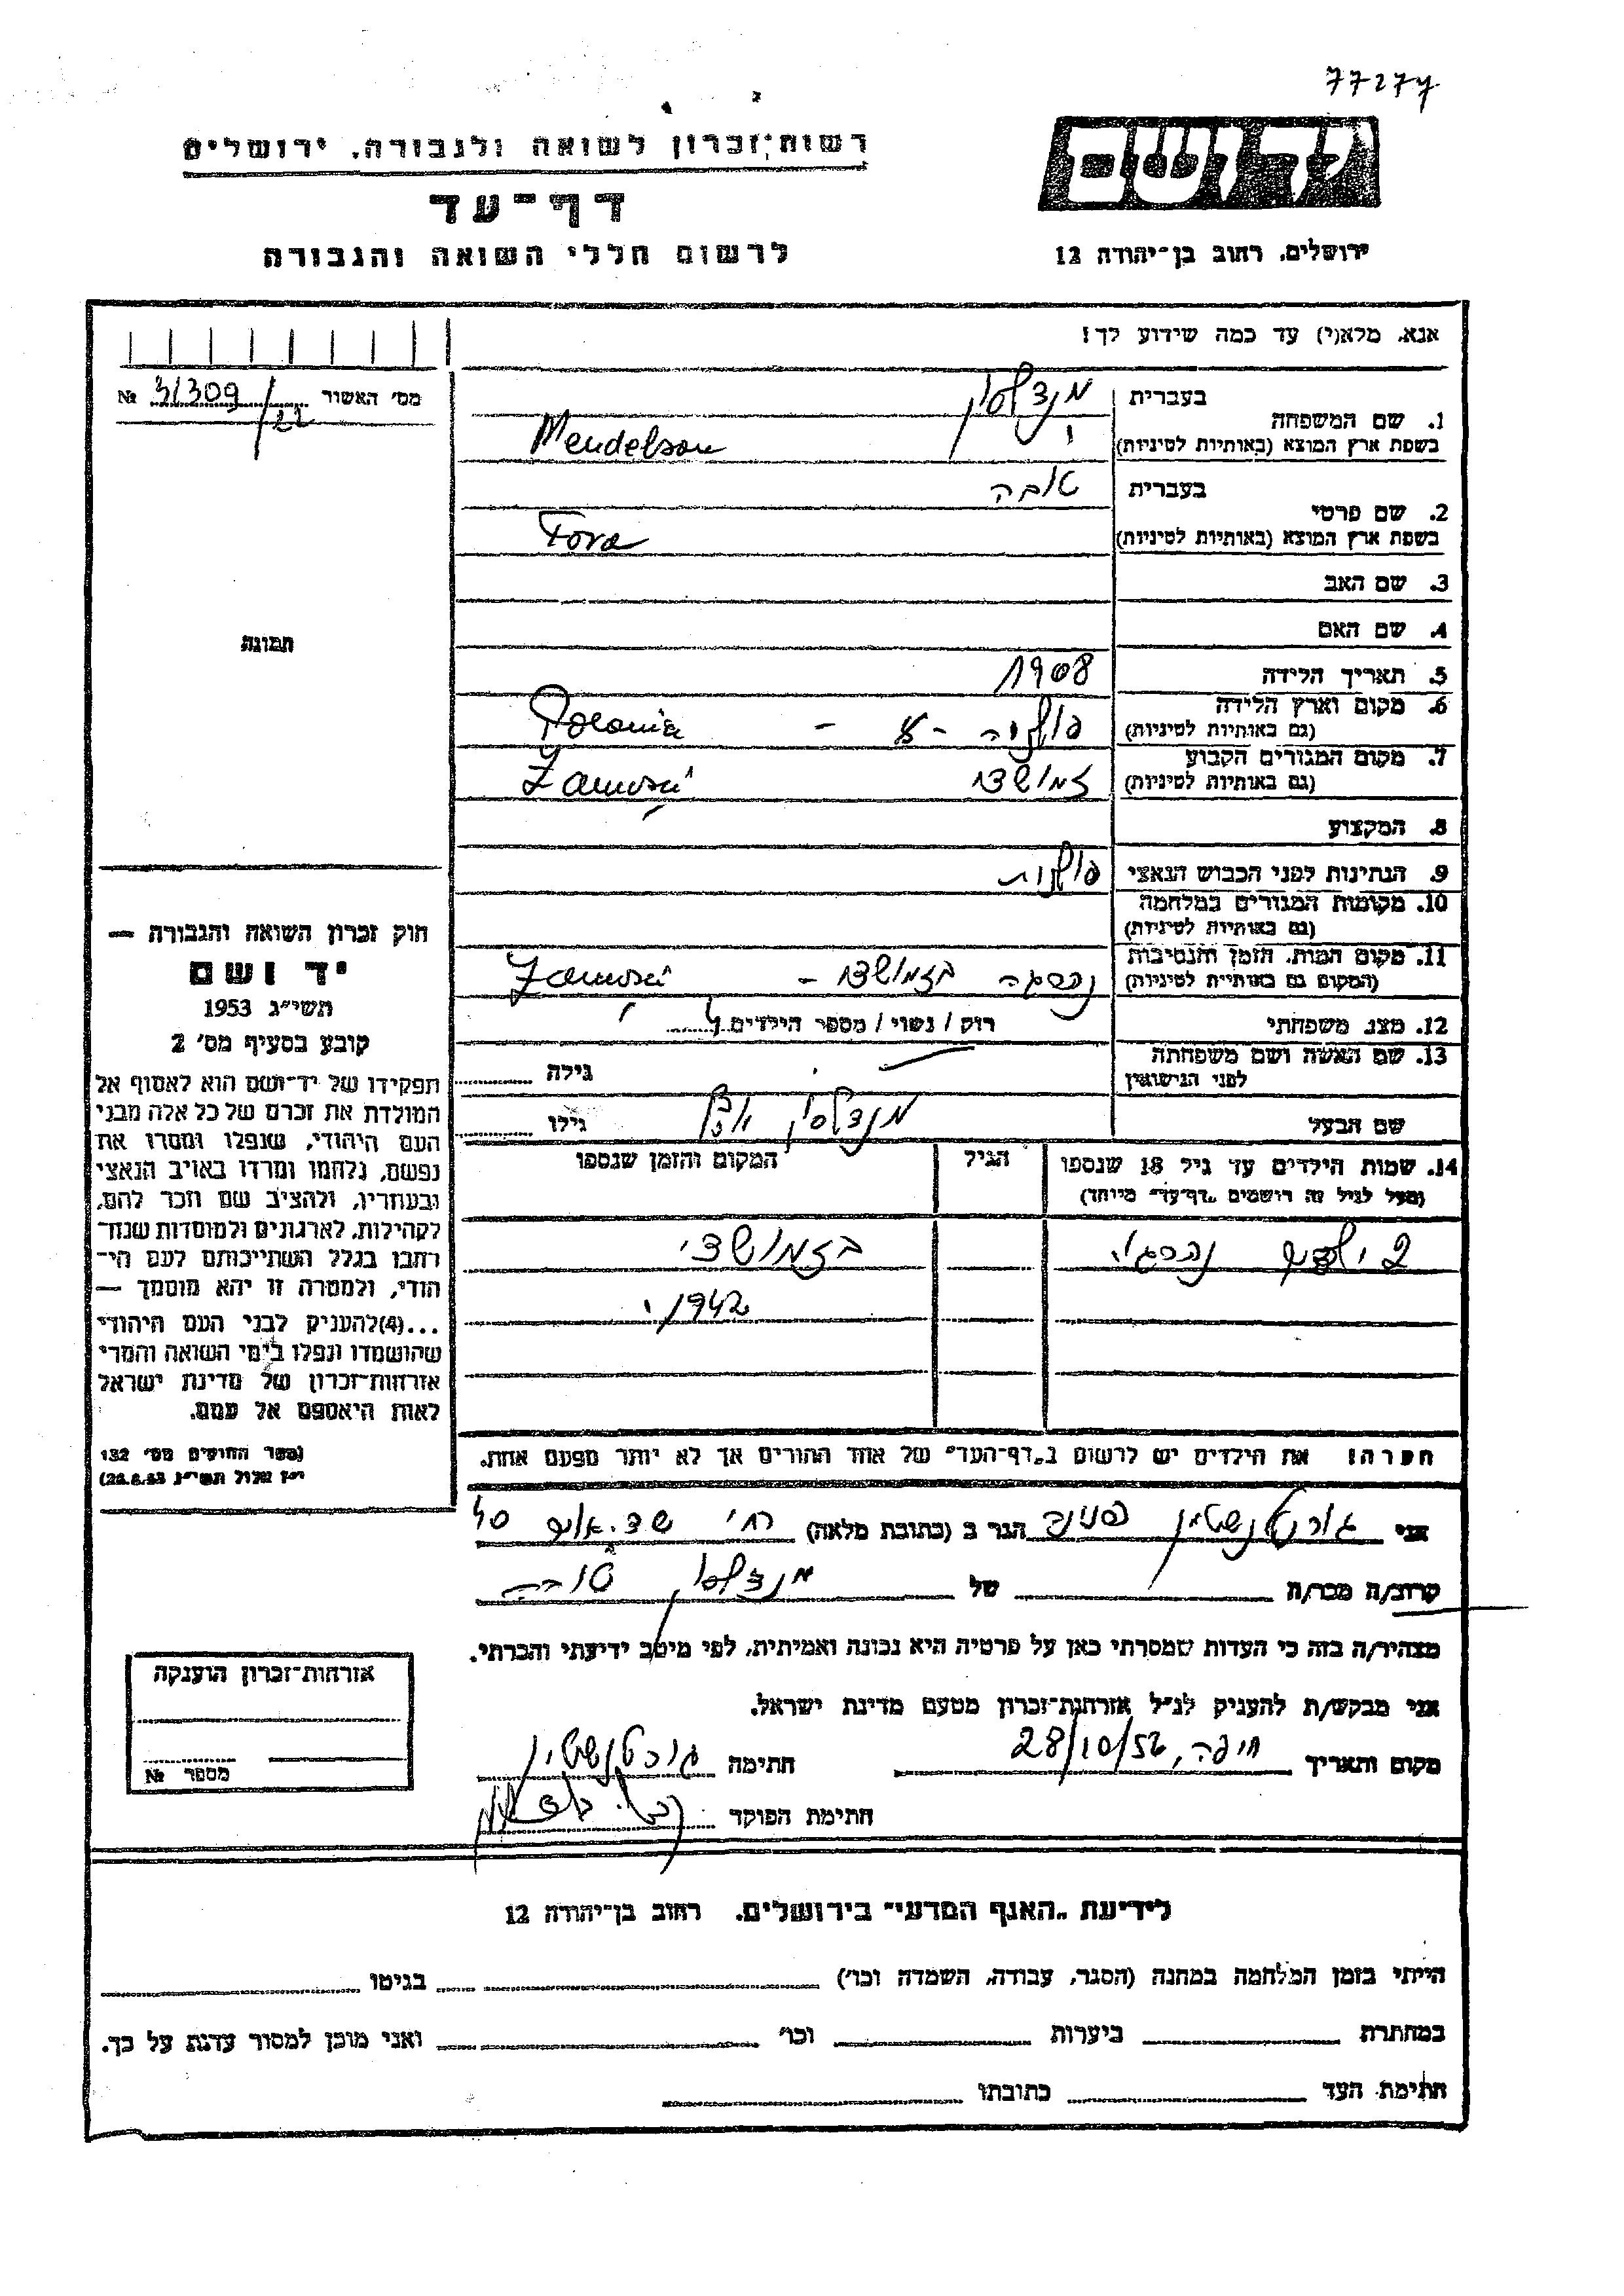 77277
רשות זכרון לשואה ולגבורה, ירושלים
דף-עד
לרשום חללי השואה והגבורה
יד ושם
ירושלים, רחוב בן-יהודה 12
אנא, מלא(י) עד כמה שידוע לך!
מס' האשור 31309/22 №
1. שם המשפחה
בעברית מנדלסון
בשפת ארץ המוצא (באותיות לטיניות) Mendelson
2. שם פרטי
בעברית טובה
בשפת ארץ המוצא (באותיות לטיניות) Tova
3. שם האב
4. שם האם
תמונה
5. תאריך הלידה 1908
6. מקום וארץ הלידה
(גם באותיות לטיניות) פולניה - Polonia
7. מקום המגורים הקבוע
(גם באותיות לטיניות) זמושצ Zamość
8. המקצוע
9. הנתינות לפני הכבוש הנאצי פולנית
10. מקומות המגורים במלחמה
(גם באותיות לטיניות)
11. מקום המות, הזמן והנסיבות
(המקום גם באותיות לטיניות) נהרגה בזמושצ - Zamość
12. מצב משפחתי רוק / נשוי / מספר הילדים
13. שם האשה ושם משפחתה
לפני הנישואין גילה
שם הבעל מנדלסון גילו
14. שמות הילדים עד גיל 18 שנספו
(מעל לגיל זה רושמים "דף-עד" מיוחד)
הגיל
המקום והזמן שנספו
2 ילדים נהרגו בזמושצ'
1942
חוק זכרון השואה והגבורה —
יד ושם
תשי"ג 1953
קובע בסעיף מס' 2
תפקידו של יד-ושם הוא לאסוף אל
המולדת את זכרם של כל אלה מבני
העם היהודי, שנפלו ומסרו את
נפשם, נלחמו ומרדו באויב הנאצי
ובעוזריו, ולהציב שם וזכר להם,
לקהילות, לארגונים ולמוסדות שנח-
רבו בגלל השתייכותם לעם הי-
הודי, ולמטרה זו יהא מוסמך —
...(4) להעניק לבני העם היהודי
שהושמדו ונפלו בימי השואה והמרי
אזרחות-זכרון של מדינת ישראל
לאות היאספם אל עמם.
(ספר החוקים מס' 132
י"ז אלול תשי"ג 28.8.53)
הערה! את הילדים יש לרשום ב"דף-העד" של אחד ההורים אך לא יותר מפעם אחת.
אני גורטנשטיין פנינה הגר ב (כתובת מלאה) רח'
קרוב/ה מכר/ה של מנדלסון טובה
מצהיר/ה בזה כי העדות שמסרתי כאן על פרטיה היא נכונה ואמיתית, לפי מיטב ידיעתי והכרתי.
אני מבקש/ת להעניק לנ"ל אזרחות-זכרון מטעם מדינת ישראל.
מקום ותאריך חיפה, 28/10/56 חתימה גורטנשטיין
חתימת הפוקד
אזרחות-זכרון הוענקה
מספר №
לידיעת "האגף המדעי" בירושלים, רחוב בן-יהודה 12
הייתי בזמן המלחמה במחנה (הסגר, עבודה, השמדה וכו') בגיטו
במחתרת ביערות וכו' ואני מוכן למסור עדות על כך.
חתימת העד כתובתו